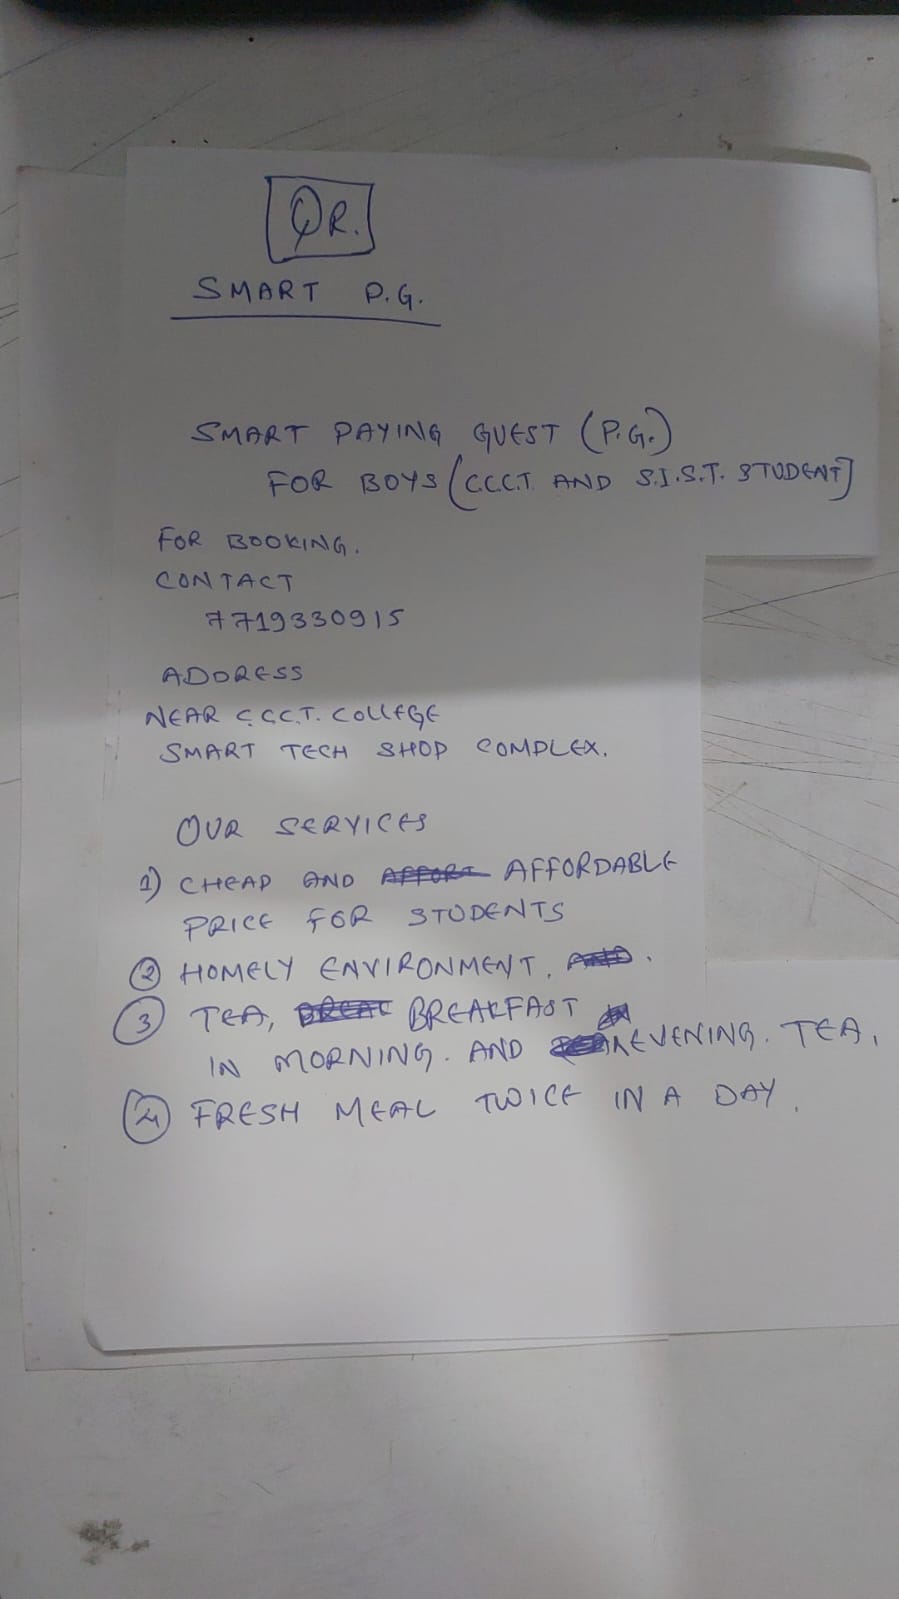 QR.
SMART P.G.
SMART PAYING GUEST (P.G.)
FOR BOYS (C.C.C.T. AND S.I.S.T. STUDENT)
FOR BOOKING.
CONTACT
7719330915
ADDRESS
NEAR C.C.C.T. COLLEGE
SMART TECH SHOP COMPLEX.
OUR SERVICES
1) CHEAP AND AFFORDABLE
PRICE FOR STUDENTS
2 HOMELY ENVIRONMENT.
3 TEA, BREAKFAST
IN MORNING. AND EVENING. TEA,
4 FRESH MEAL TWICE IN A DAY.